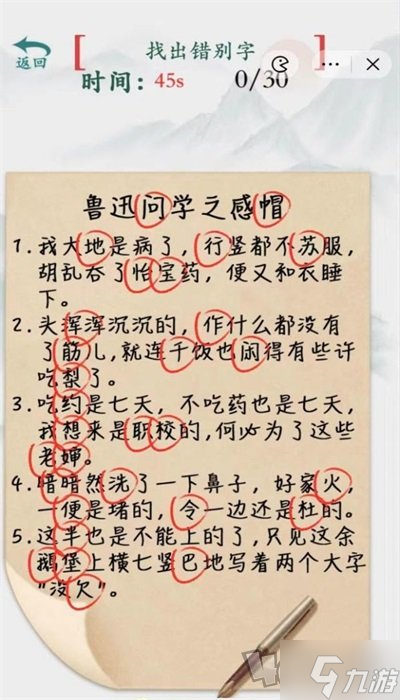 返回
[ 找出错别字 ]
时间：45s 0/30
鲁迅问学之感帽
1. 我大地是病了，行竖都不苏服，
胡乱吞了怡宝药，便又和衣睡
下。
2. 头浑浑沉沉的，作什么都没有
了筋儿，就连千饭也闹得有些许
吃梨了。
3. 吃约是七天，不吃药也是七天，
我想来是职校的，何必为了这些
老婶。
4. 暗暗然洗了一下鼻子，好家火，
一便是堵的，令一边还是杜的。
5. 这半也是不能上的了，只见这余
鹅堡上横七竖巴地写着两个大字
"没欠"。
九游